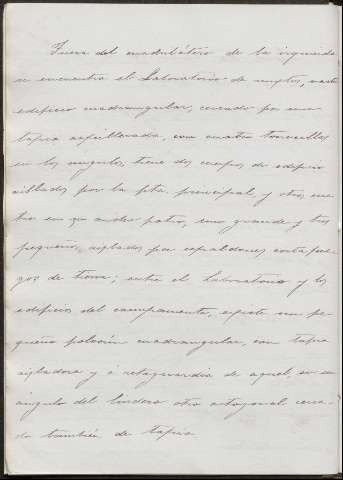 Fuera del cuadrilátero de la izquierda
se encuentra el Laboratorio de mixtos, vasto
edificio cuadrangular, cercado por una
tapia aspillerada, con cuatro torrecillas
en los angulos, tiene dos cuerpos de edificio
aislados por la pta principal, y otros
en su patio, uno grande y tres
pequeños, aislados por espaldones cortafue-
gos de tierra; entre el Laboratorio y los
edificios del campamento, existe un pe-
queño polvorin cuadrangular, con tapia
aisladora y á retaguardia de aquel, en su
ángulo del lindero otro octogonal cerca-
do tambien de tapia.